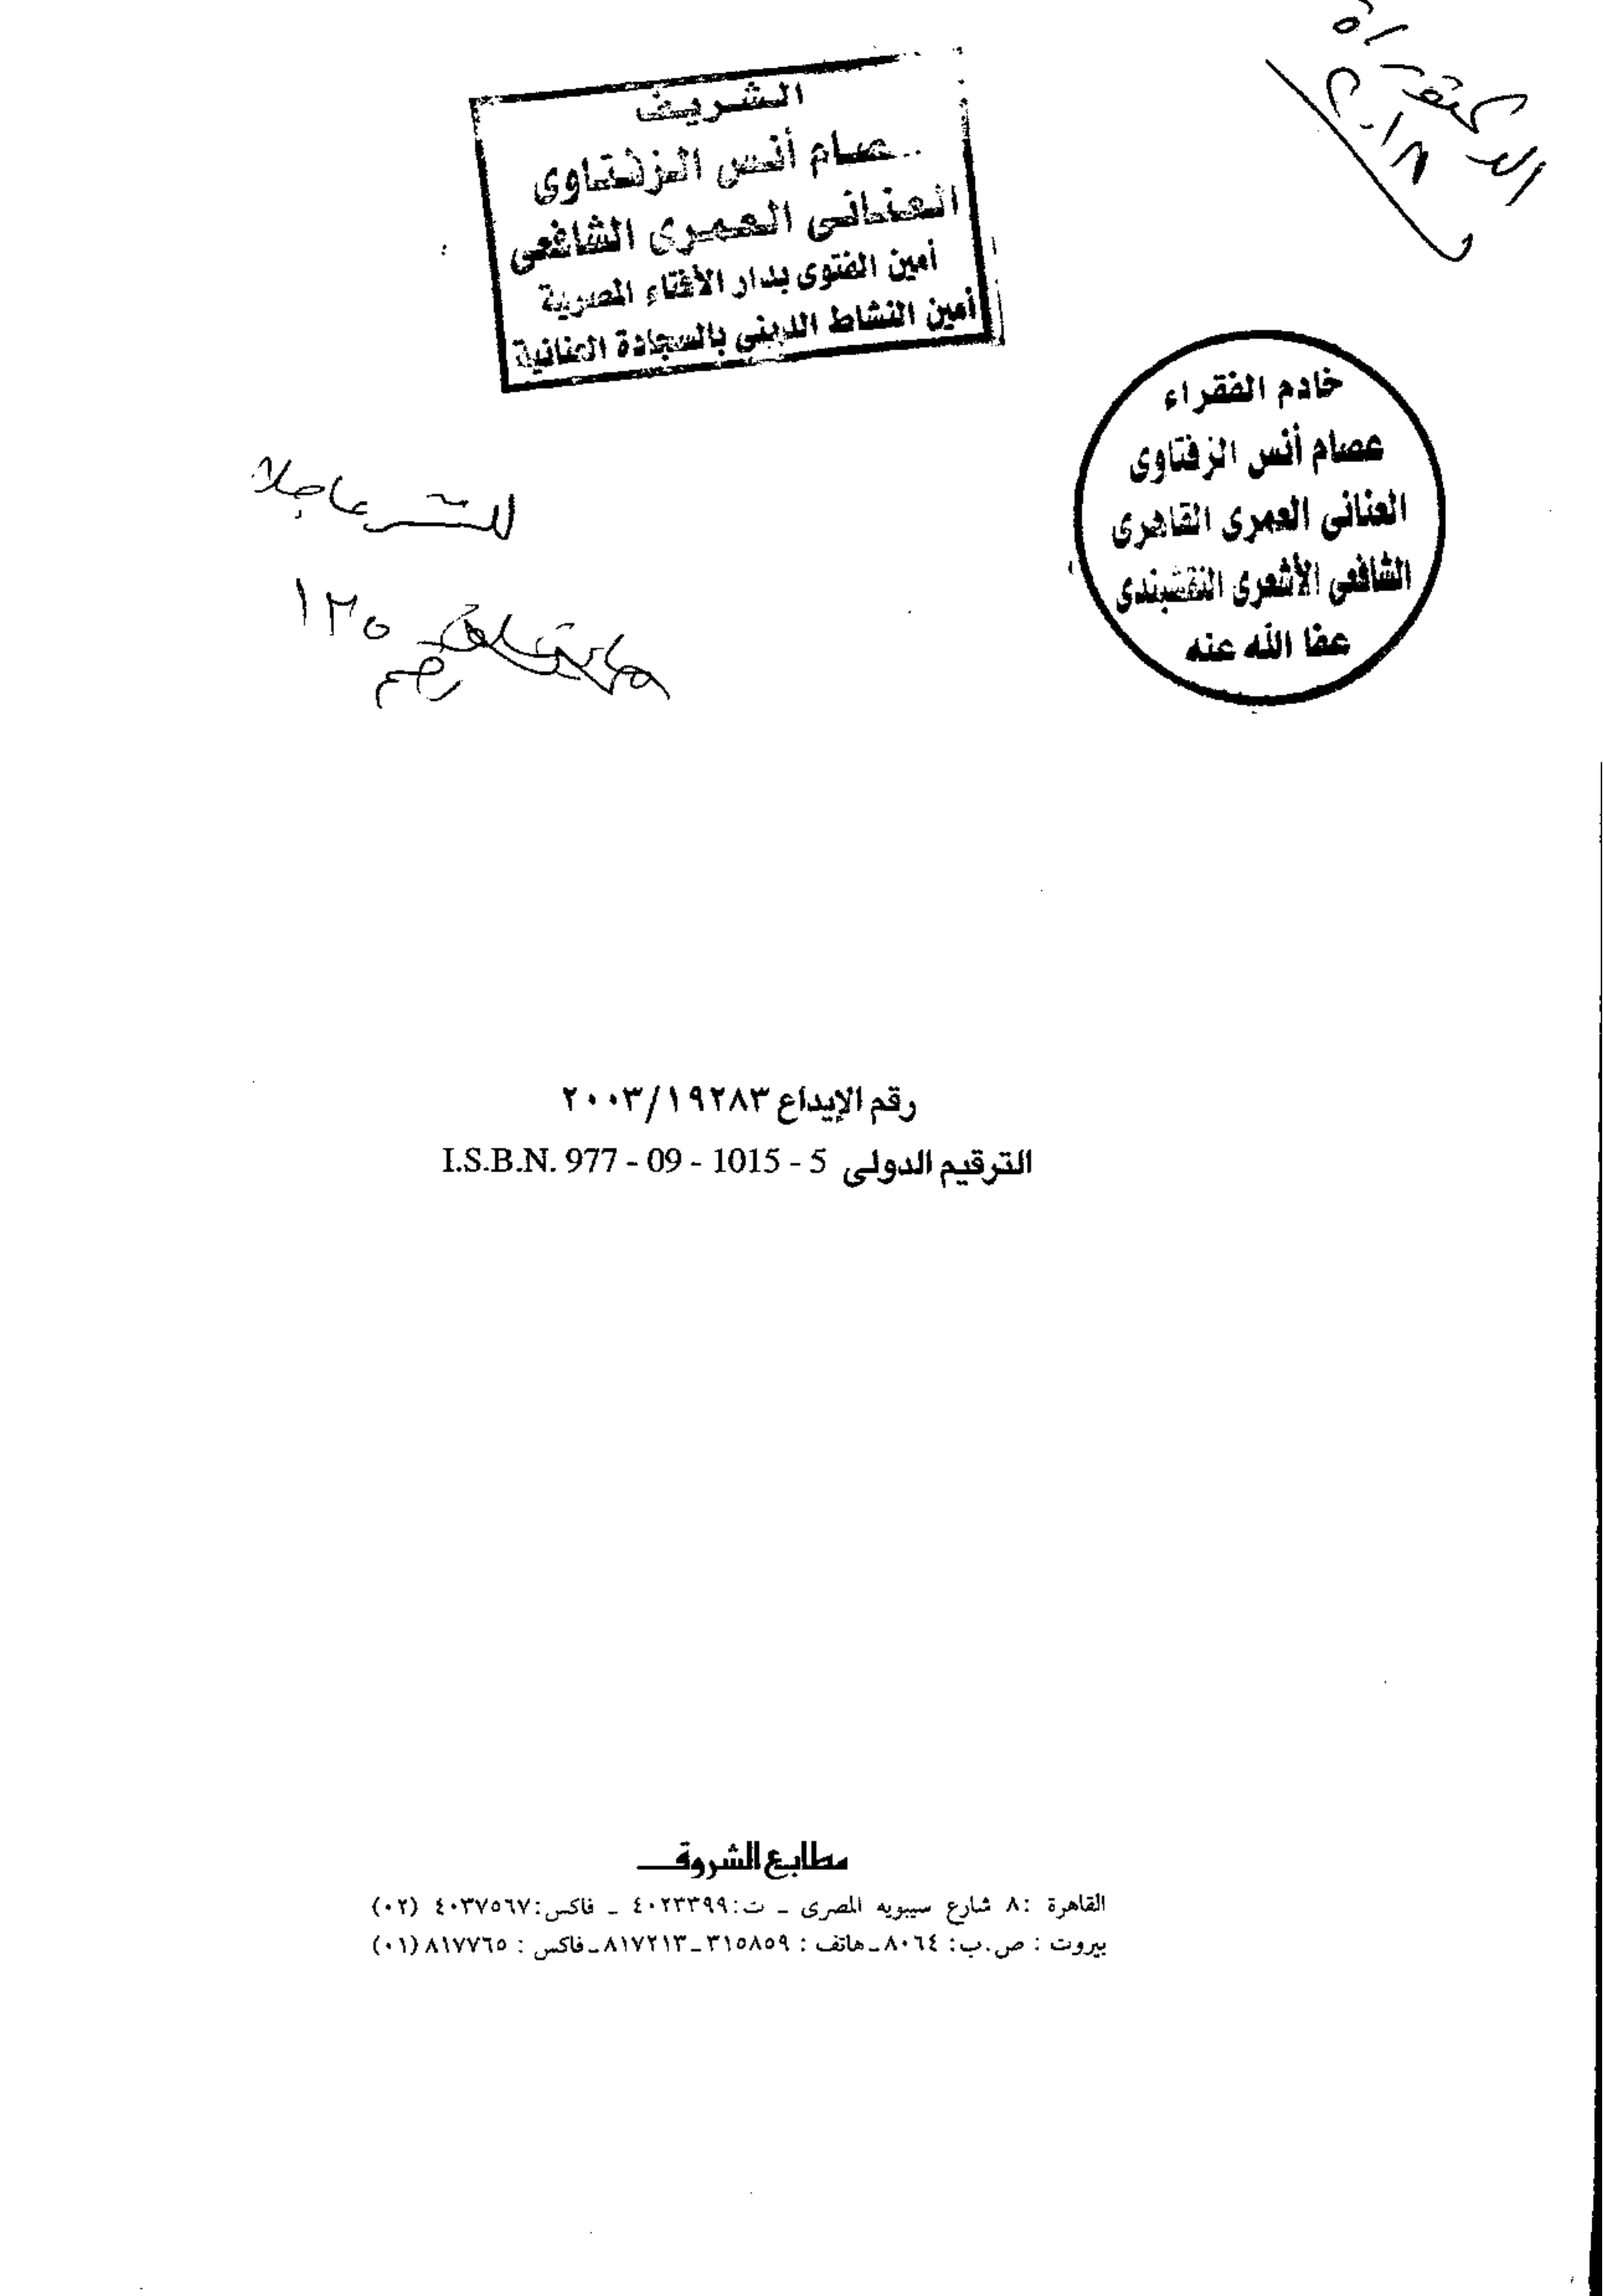 الدكتوراة
٢٠١٨
الشريف
عصام أنس الزفتاوى
العنانى العمرى الشافعى
أمين الفتوى بدار الأفتاء المصرية
أمين النشاط الدينى بالسجادة العنانية
خادم الفقراء
عصام أنس الزفتاوى
العنانى العمرى القاهرى
الشافعى الأشعرى النقشبندى
عفا الله عنه
للنشر عاجلا
١٣٥
رقم الإيداع ١٩٢٨٣/٢٠٠٣
الترقيم الدولى I.S.B.N. 977 - 09 - 1015 - 5
مطابع الشروق
القاهرة : ٨ شارع سيبويه المصرى ـ ت: ٤٠٢٣٣٩٩ ـ فاكس: ٤٠٣٧٥٦٧ (٠٢)
بيروت : ص.ب: ٨٠٦٤ـ هاتف : ٣١٥٨٥٩ـ٨١٧٢١٣ـ فاكس : ٨١٧٧٦٥ (٠١)